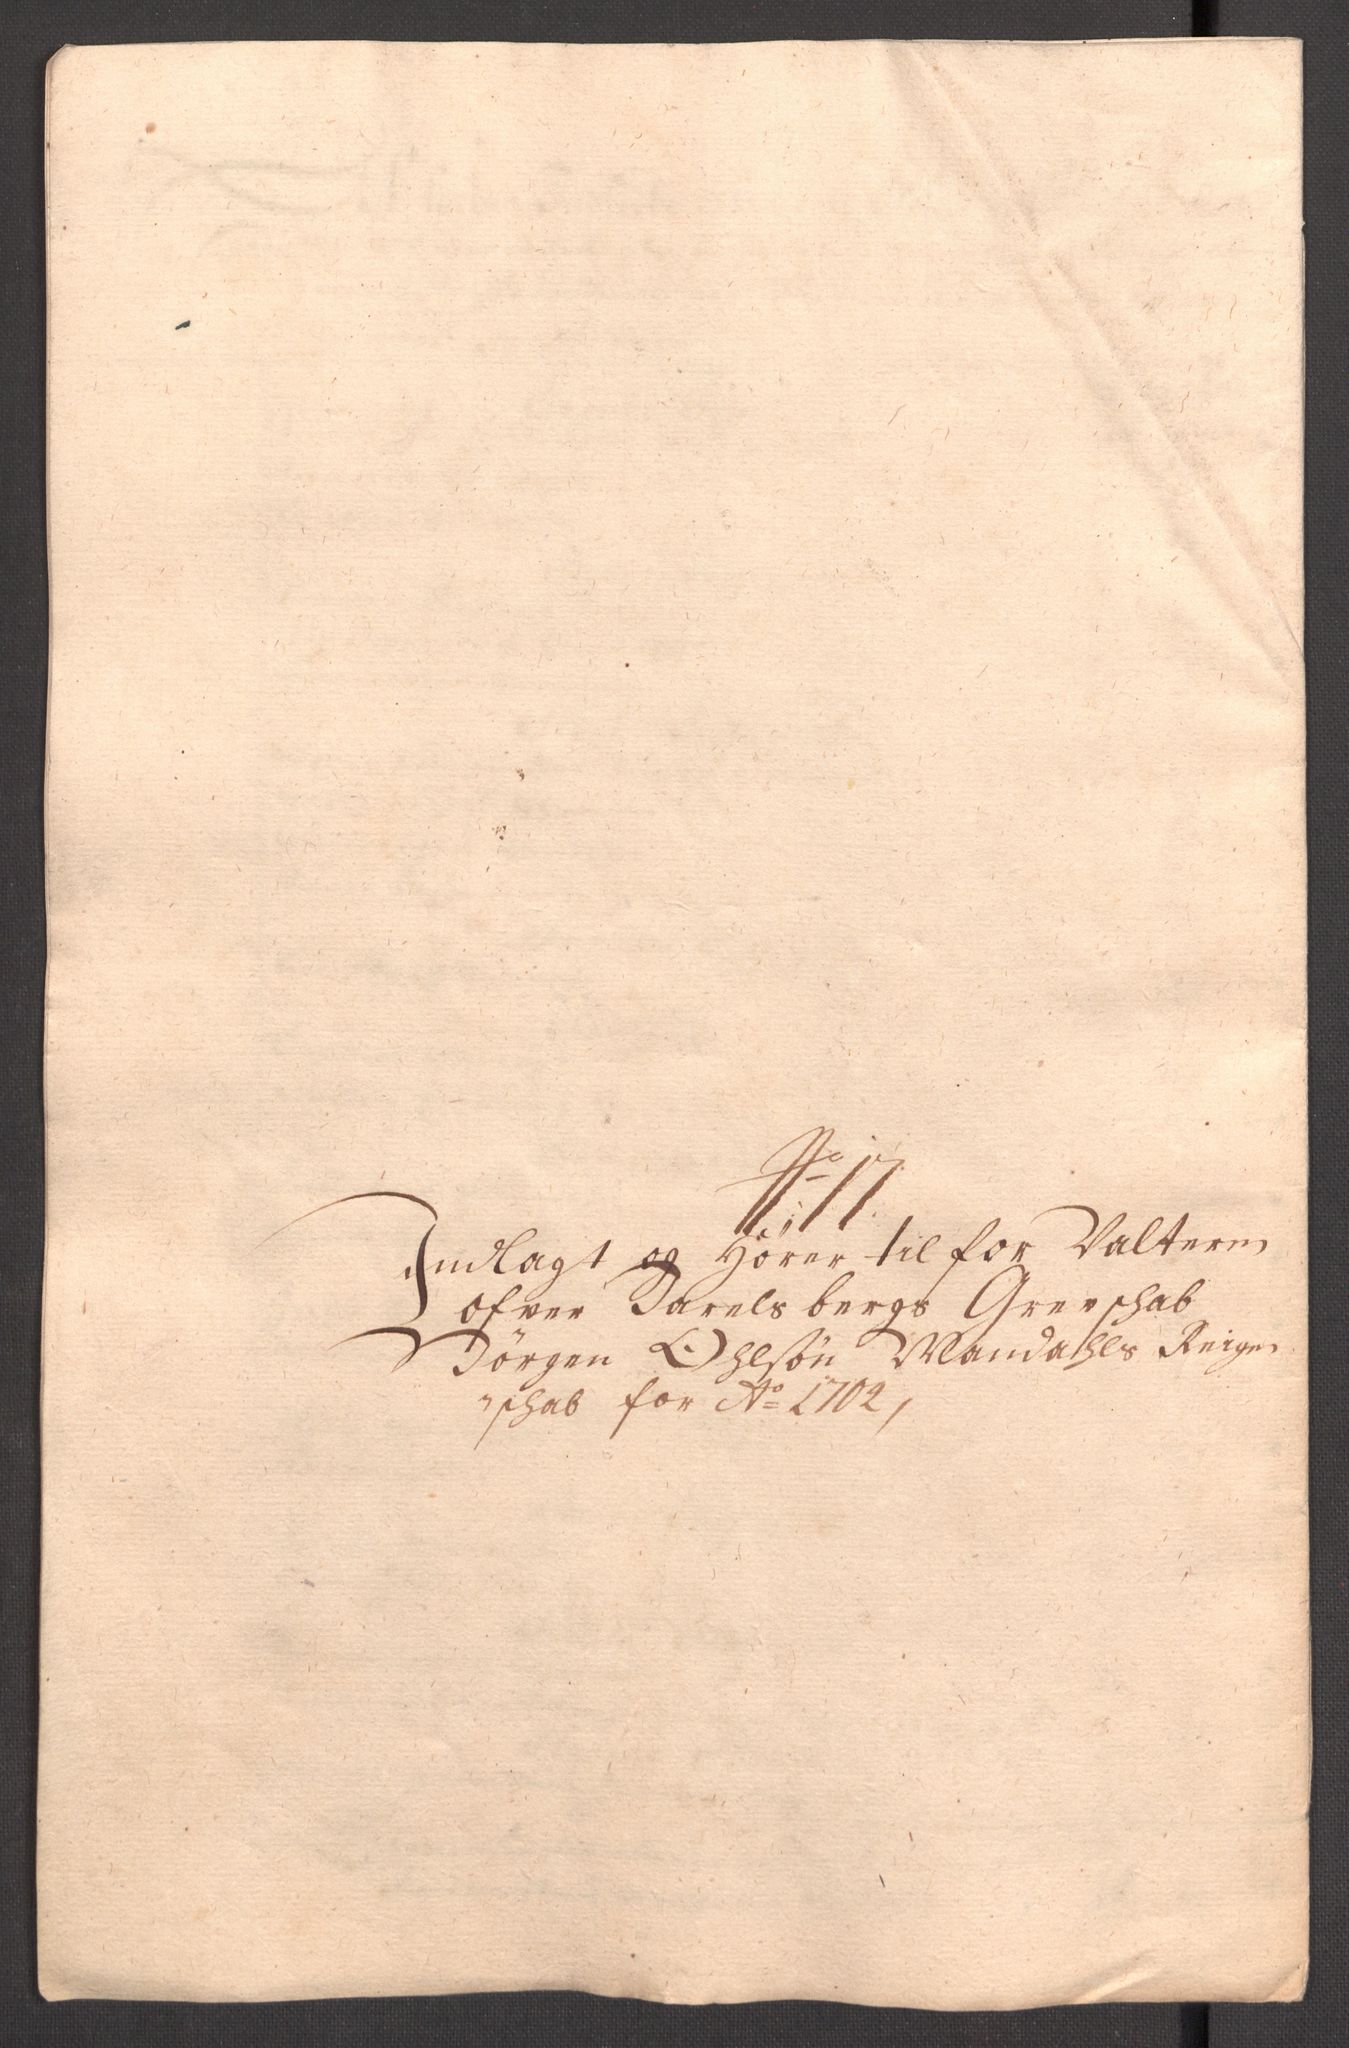 No 17
Indlagt og Hörer til for Valteren
ofver Jarelsbergs Grevschab
Jörgen Ohlsön Mandahls Reigen
schab for Ao 1702,